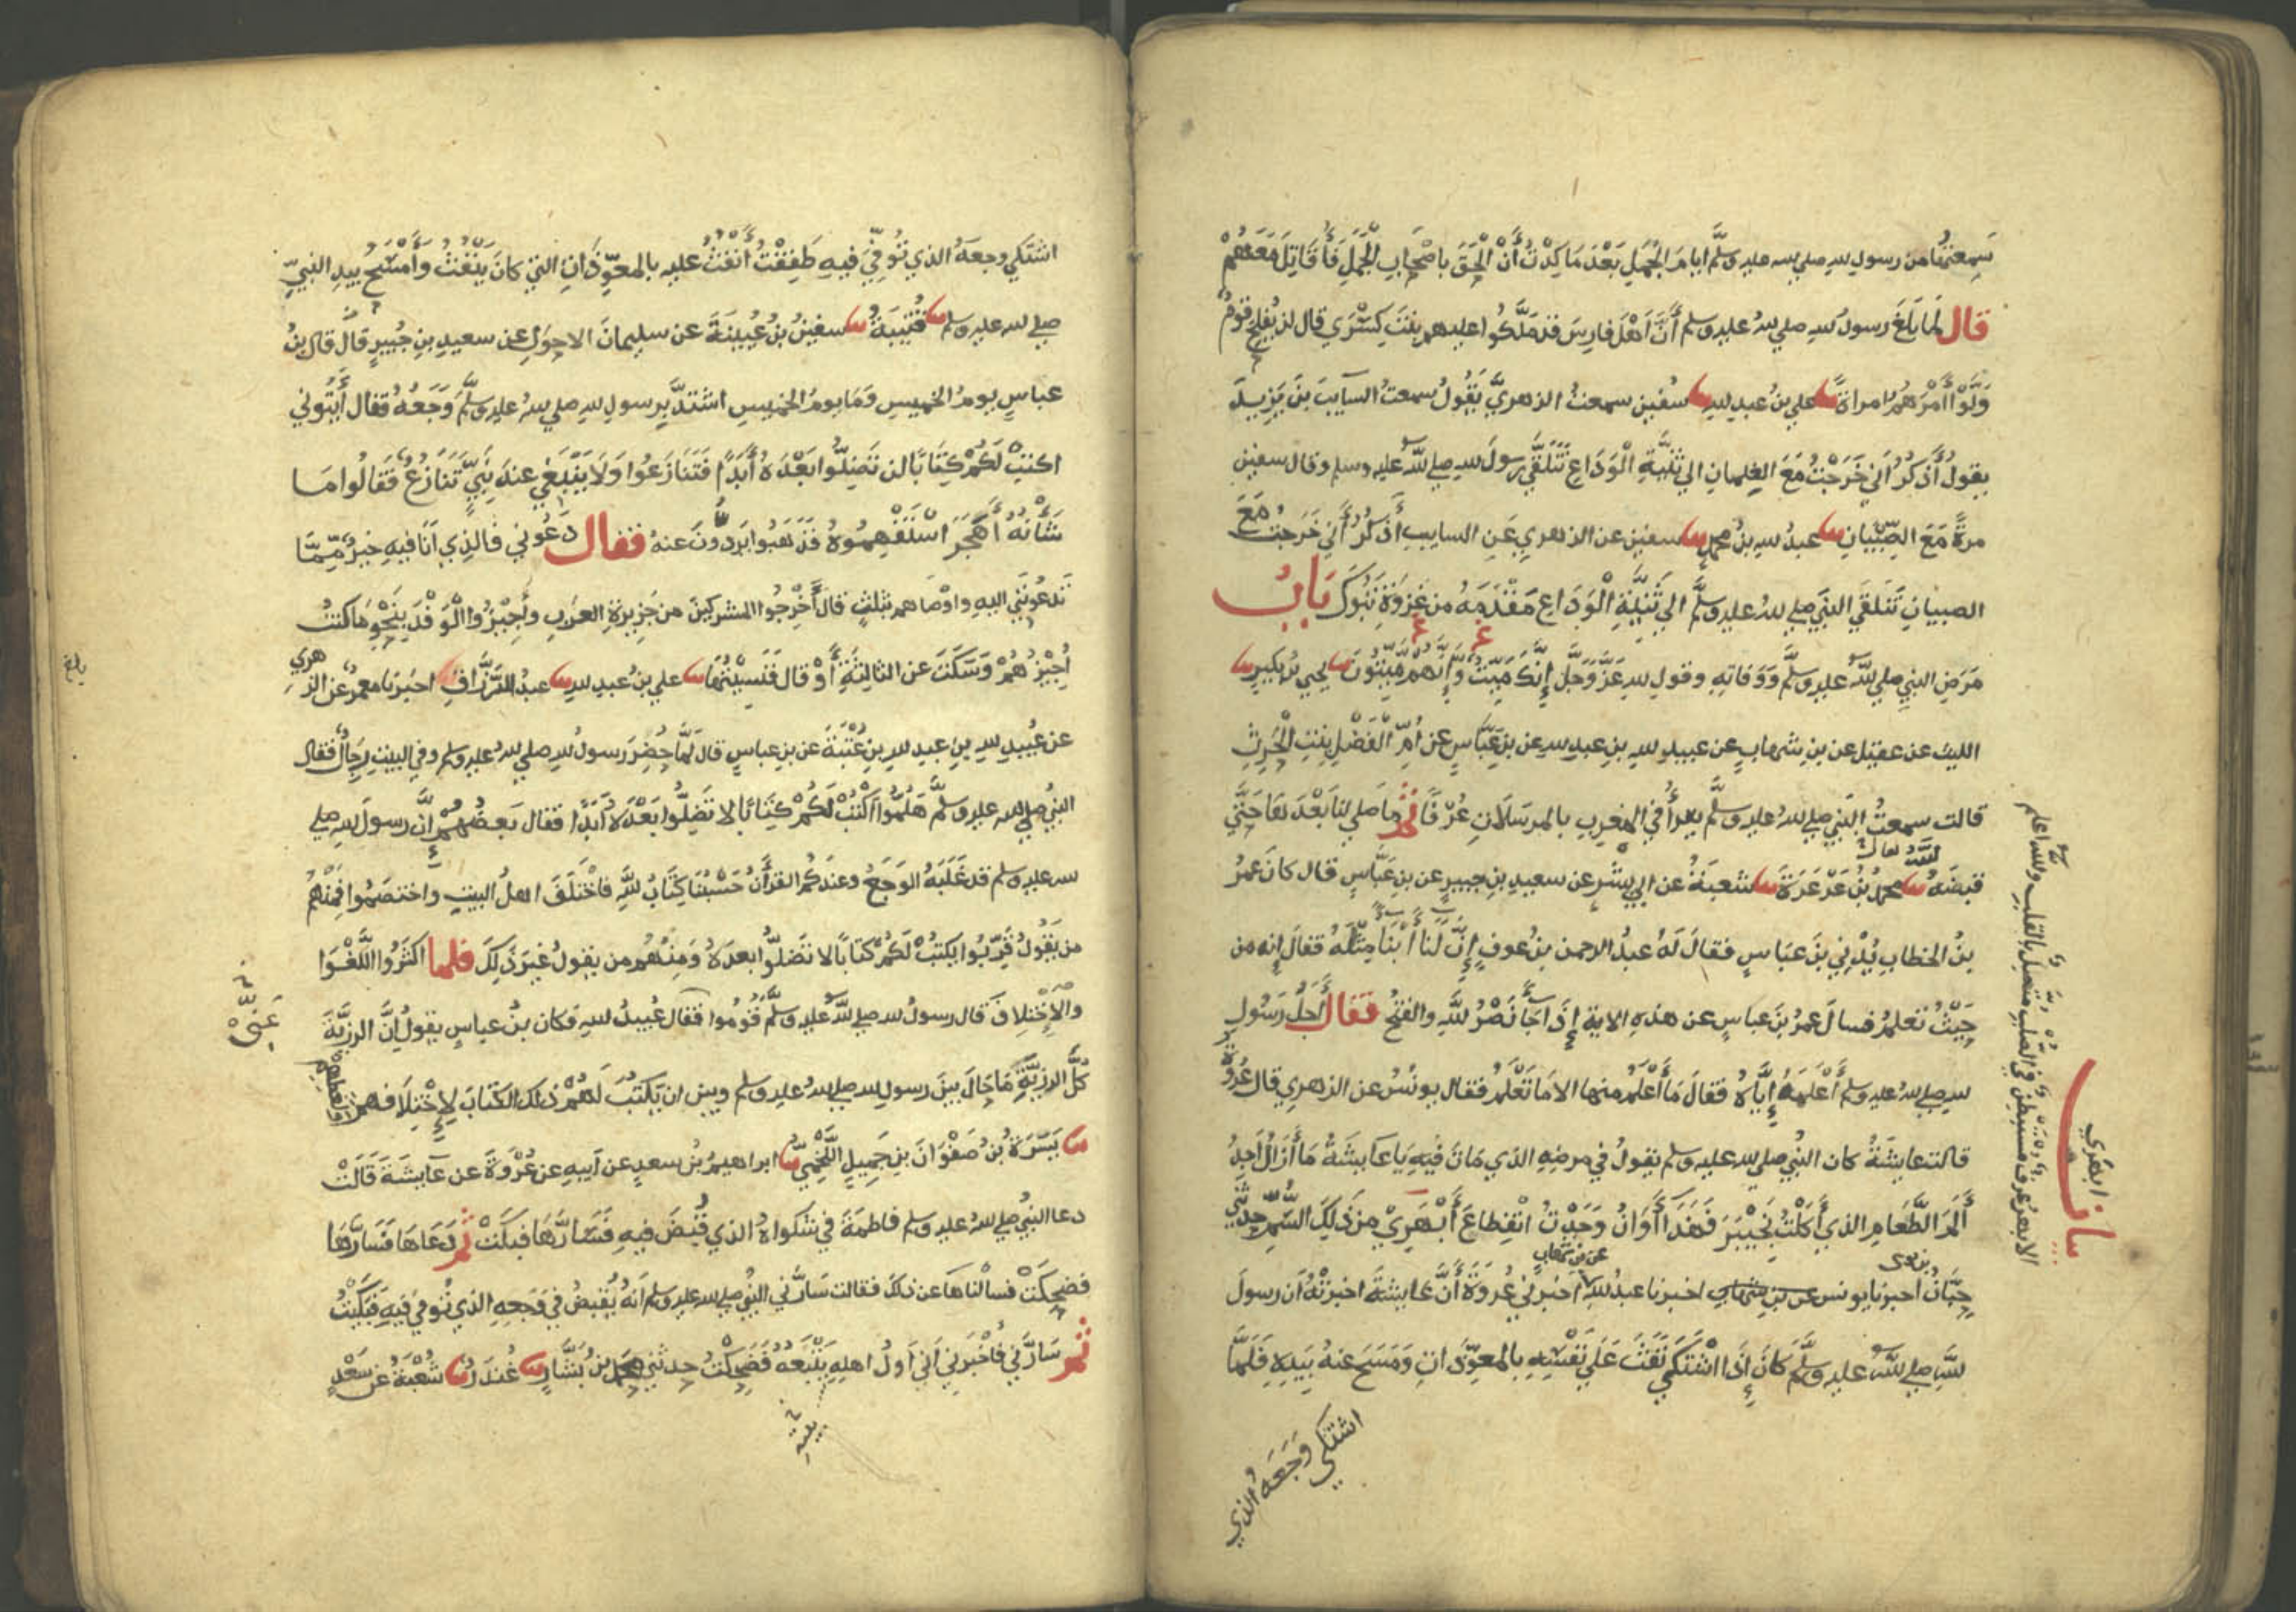 سَمِعتُها من رسول لله صلي لله عليه وسلَّم ايامَ الجَمل بَعْدَ مَا كِدْتُ أَنْ أَلْحَقَ باصْحَابِ الْجَمَلِ فَأُقَاتِلَ مَعَهُمْ
قال لمَا بَلَغَ رسولَ لله صلي لله عليه وسلم أَنَّ أَهْلَ فارِسَ قد مَلَّكُوا عليهم بِنْتَ كِسْرَي قال لن يُفلِحَ قومٌ
وَلَّوْا أَمْرَهُمْ امراةً نا علي بنُ عبد لله نا سفين سمعتُ الزهريَّ يَقُولُ سمعتُ السايبَ بنَ يَزِيدَ
يقولُ أَذكُرُ اَني خَرَجْتُ مَعَ الغِلمانِ الي ثَنِيَّةِ الْوَدَاعِ نَتَلَقَّي رسولَ لله صلي لله عليه وسلم وقال سفين
مرةً مَعَ الصِّبْيانِ نا عبدُ لله بنُ محمدٍ نا سفين عن الزهري عَنِ السايب أَذكُرُ أَني خَرَجتُ مَعَ
الصبيانِ نَتَلقَي النبيَ صلي لله عليه وسلَّم الي ثَنِيَّةِ الْوَدَاعِ مَقْدَمَهُ من غزوَةِ تَبُوكَ بَابُ
مَرَضِ النبي صلي لله عليه وسلَّم وَوَفاتهِ وقولِ لله عَزَّ وَجَلَّ إِنَّكَ مَيِّتٌ وَإِنَّهُمْ مَيِّتُونَ نا يحيي بنُ بكيرٍ نا
الليثُ عن عقيل عن بنِ شهابٍ عن عبيدِ لله بنِ عبدِ لله عن بنِ عَبَّاسٍ عن أُمِّ الْفَضْلِ بِنتِ الْحَرِثِ
قالت سمعتُ النبيَ صلي لله عليه وسلَّم يقرأُ في المغربِ بالمرسَلاتِ عُرْفًا ثُمَّ ما صَلي لنَا بَعْدَهَا حَتَّي
قبضَهُ لله تعالي نا محمدُ بْنُ عَرْعَرَةَ نا شعبةُ عن ابي بِشْرٍ عن سعيدِ بنِ جبيرٍ عن بنِ عَبَّاسٍ قال كان عمرُ
بنُ الخطابِ يُدْنِي بنَ عبَاسٍ فقالَ لَهُ عبدُ الرحمن بنُ عوفٍ إِنَّ لَنَا أَبْنَاً مِثْلَهُ فقالَ إِنه من
حَيْثُ تعلمُ فسالَ عمرُ بنَ عباسٍ عن هذهِ الايةِ إِذَا جَآءَ نَصْرُ للَّهِ والفتحُ فقال أَجَلُ رَسُولِ
لله صلي لله عليه وسلم أَعْلَمَهُ إِيَّاهُ فقالَ مَا أَعْلَمُ منها الا مَا تَعْلَمُ فقال يونُسُ عن الزهري قال عُروَةُ
قالت عايشةُ كان النبيُ صلي لله عليه وسلم يقولُ في مرضِهِ الذي مَاتَ فِيهِ يَا عَايشَةُ مَا أَزَالُ أَجِدُ
أَلَمَ الطَّعَامِ الذي أَكَلْتُ بِخَيْبَرَ فَهَذَا أَوَانُ وَجَدْتُ انْقِطَاعَ أَبْهَرِيْ مِن ذَلِكَ السُّمِّ حدثني
حِبَّانُ بن موسي أخبرنا يونس عن بن شهاب اخبرنا عبدُ لله عن بن شهاب أخبرَني عُروَةُ أَنَّ عايشةَ اخبرتْهُ أن رسولَ
للَّهِ صلي لله عليه وسلَّم كانَ إِذَا اشْتَكَي نَفَثَ عَلَي نَفْسِهِ بِالمعوِّذاتِ وَمَسَحَ عنهُ بِيَدِهِ فَلَمَّا
اشتكي وَجَعَه الذي
الابهرُ عرق مستبطن في الصلب متصل بالقلب والله أعلم
ابهَري
اشتكي وجعَهُ الذي تُوُفِّيَ فيهِ طَفِقْتُ أَنفُثُ عليه بالمعوِّذَاتِ التي كانَ يَنْفُثُ وَأَمْسَحُ بيدِ النبيِّ
صلي لله عليه وسلم نا قُتَيبَةُ نا سفينُ بنُ عُيَيْنَةَ عن سليمانَ الاحوَلِ عن سعيدِ بنِ جُبيرٍ قالَ قال بنُ
عباسٍ يومُ الخميسِ وَمَا يومُ الخميسِ اشتدَّ برسولِ لله صلي لله عليه وسلَّم وَجَعُهُ فقال أَيتُوني
اكتبْ لَكُمْ كِتَابًا لن تَضِلُّوا بَعْدَهُ أَبَدًا فَتَنَازَعُوا وَلَا يَنْبَغِي عندَ نَبِيٍّ تَنَازُعٌ فَقَالُوا مَا
شَأْنُهُ أَهَجَرَ اسْتَفْهِمُوهُ فَذَهَبُوا يَرُدُّونَ عنهُ فقال دَعُوني فالذِي أَنَا فيهِ خيرٌ مِمَّا
تَدعُونَني اليهِ واوْصَاهم بثلثٍ قال أَخْرِجُوا المشركينَ من جَزِيرَةِ العَرَبِ وأَجِيزُوا الْوَفْدَ بِنَحْوِ مَا كنتُ
أُجِيزُهُمْ وَسَكَتَ عن الثالثةِ أَوْ قال فَنَسِيْتُهَا نا علي بنُ عبدِ لله نا عبدُ الرَّزَّاقِ اخبَرنا معمرٌ عن الزهري
عن عُبيدِ لله بنِ عبدِ لله بنِ عُتْبَةَ عن بنِ عباسٍ قالَ لَمَّا حُضِرَ رسولُ لله صلي لله عليه وسلم وفي البيتِ رِجالٌ فقال
النبيُ صلي لله عليه وسلَّم هَلُمُّوا أَكْتُبْ لَكُمْ كِتَابًا لا تَضِلُّوا بَعْدَهُ أَبَدًا فقال بَعضُهُمْ إِنَّ رسولَ لله صلي
لله عليه وسلم قد غَلَبَهُ الوَجَعُ وعندَكُم القرأَنُ حَسْبُنَا كِتَابُ للَّهِ فَاخْتَلَفَ اهلُ البيتِ واختصَمُوا فَمِنْهُمْ
من يَقُولُ قَرِّبُوا يكتبْ لَكُمْ كتابًا لا تَضِلُّوا بعدَهُ وَمِنْهُم من يقولُ غَيرَ ذَلِكَ فلما اكثَرُوا اللَّغْوَا
والاخْتِلافَ قال رسولُ لله صلي لله عليه وسلَّم قُومُوا فقال عُبيدُ لله فكان بنُ عباسٍ يقولُ إِنَّ الرزيَّةَ
كلَّ الرزيَّةِ مَا حَالَ بينَ رسولِ لله صلي لله عليه وسلم وبين ان يَكتُبَ لَهُمْ ذلك الكتابَ لِاِخْتِلَافِهم ولغطهم
نا يَسَرَةُ بنُ صَفْوَانَ بنِ جَمِيلٍ اللَّخْمِيُّ نا ابراهيمُ بنُ سعدٍ عن أبيهِ عن عُرْوَةَ عن عَايشَةَ قَالَتْ
دعا النبيُ صلي لله عليه وسلم فاطمَةَ في شكواهُ الذي قُبِضَ فيهِ فسَارَّهَا فبكَتْ ثم دَعَاها فَسَارَّهَا
فضحِكَتْ فسألناهَا عن ذلك فقالت سَارَّني النبيُ صلي لله عليه وسلم أَنهُ يُقبضُ في وَجَعِهِ الذي تُوفيَ فيهِ فَبكَيْتُ
ثم سَارَّني فأَخْبَرنِي أَني أَولُ اهلهِ يَتْبَعُهُ فَضَحِكْتُ حدثني محمد بنُ بَشَّارٍ نا غُندَرٌ نا شُعْبَةُ عن سَعْدٍ
بلغ
عَنِّي